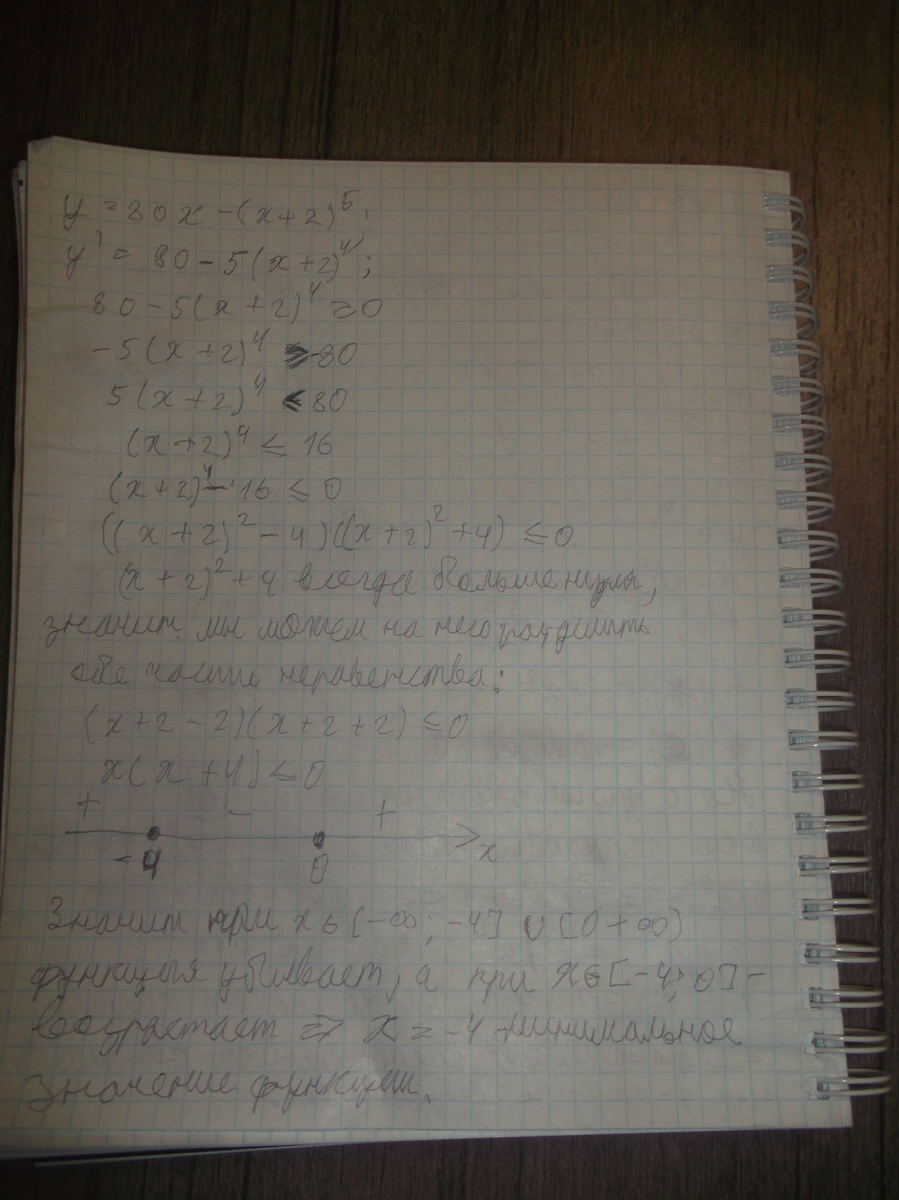 y = 80x - (x+2)⁵;
y' = 80 - 5(x+2)⁴;
80 - 5(x+2)⁴ ≥ 0
-5(x+2)⁴ ≥ -80
5(x+2)⁴ ≤ 80
(x+2)⁴ ≤ 16
(x+2)⁴ - 16 ≤ 0
((x+2)² - 4)((x+2)² + 4) ≤ 0
(x+2)² + 4 всегда больше нуля,
значит мы можем на него разделить
обе части неравенства:
(x+2-2)(x+2+2) ≤ 0
x(x+4) ≤ 0
+ - +
-4 0 x
Значит при x ∈ [-∞; -4] ∪ [0 +∞)
функция убывает, а при x ∈ [-4; 0] -
возрастает ⇒ x = -4 минимальное
значение функции.